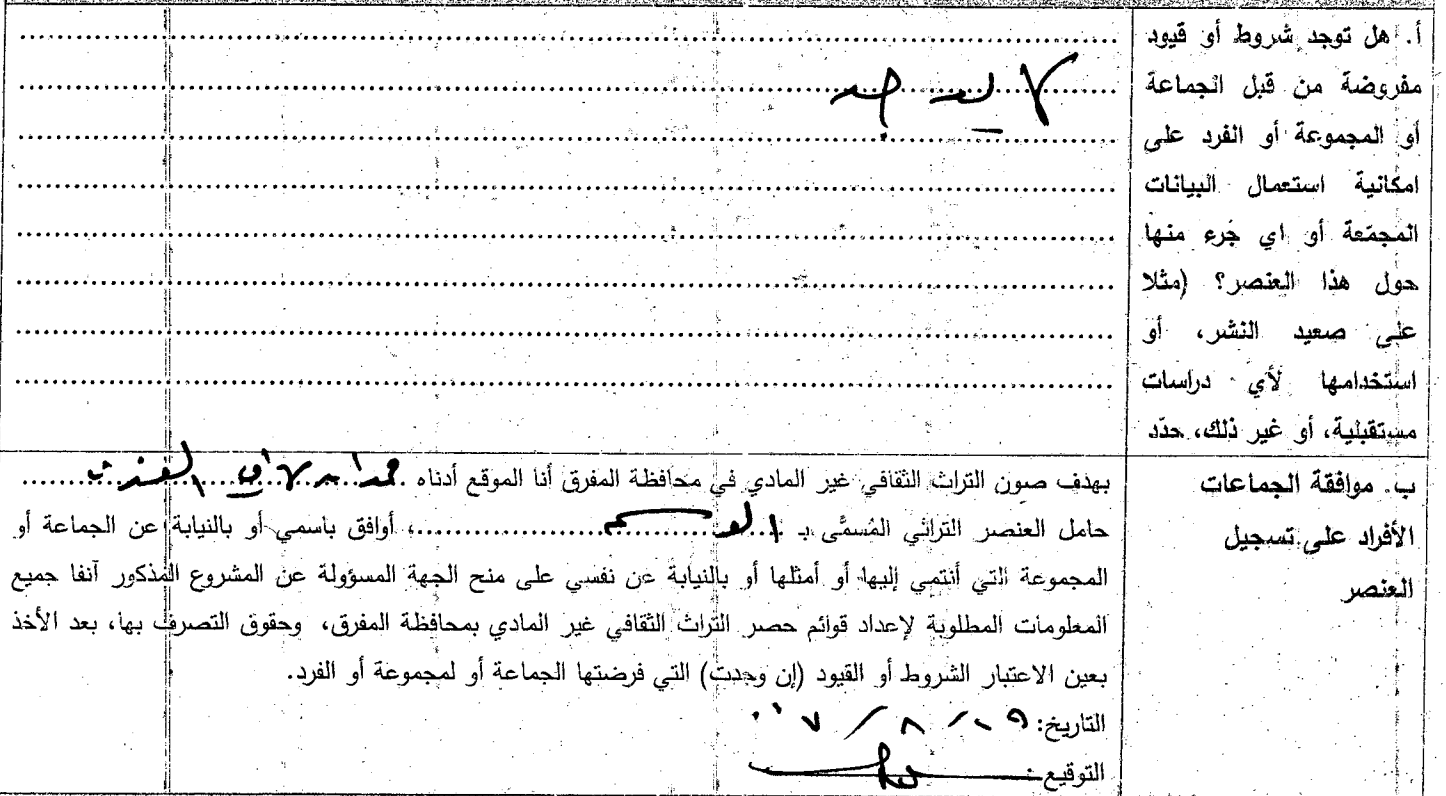 أ. هل توجد شروط أو قيود
مفروضة من قبل الجماعة
أو المجموعة أو الفرد على
امكانية استعمال البيانات
المجمّعة أو اي جُزء منها
حول هذا العنصر؟ (مثلا
على صعيد النشر، أو
استخدامها لأي دراسات
مستقبلية، أو غير ذلك، حدّد
لا يوجد
ب. موافقة الجماعات
الأفراد على تسجيل
العنصر
بهدف صون التراث الثقافي غير المادي في محافظة المفرق أنا الموقع أدناه
حامل العنصر التراثي المُسمَّى بـ الوسم، أوافق باسمي أو بالنيابة عن الجماعة أو
المجموعة التي أنتمي إليها أو أمثلها أو بالنيابة عن نفسي على منح الجهة المسؤولة عن المشروع المذكور آنفا جميع
المعلومات المطلوبة لإعداد قوائم حصر التراث الثقافي غير المادي بمحافظة المفرق، وحقوق التصرف بها، بعد الأخذ
بعين الاعتبار الشروط أو القيود (إن وجدت) التي فرضتها الجماعة أو لمجموعة أو الفرد.
التاريخ:
التوقيع: